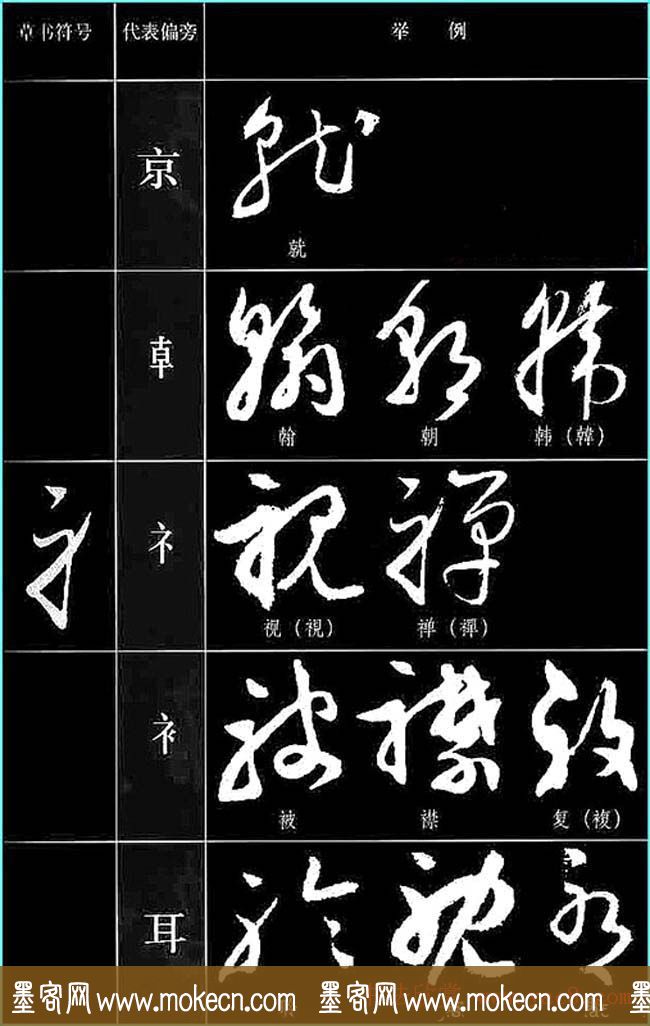 草书符号 代表偏旁 举例
京
就
就
𠦝
翰 朝 韩
翰 朝 韩（韓）
礻
视 禅
视（視） 禅（禪）
衤
被 襟 复
被 襟 复（複）
耳
墨客网 www.mokecn.com 墨客网 www.mokecn.com